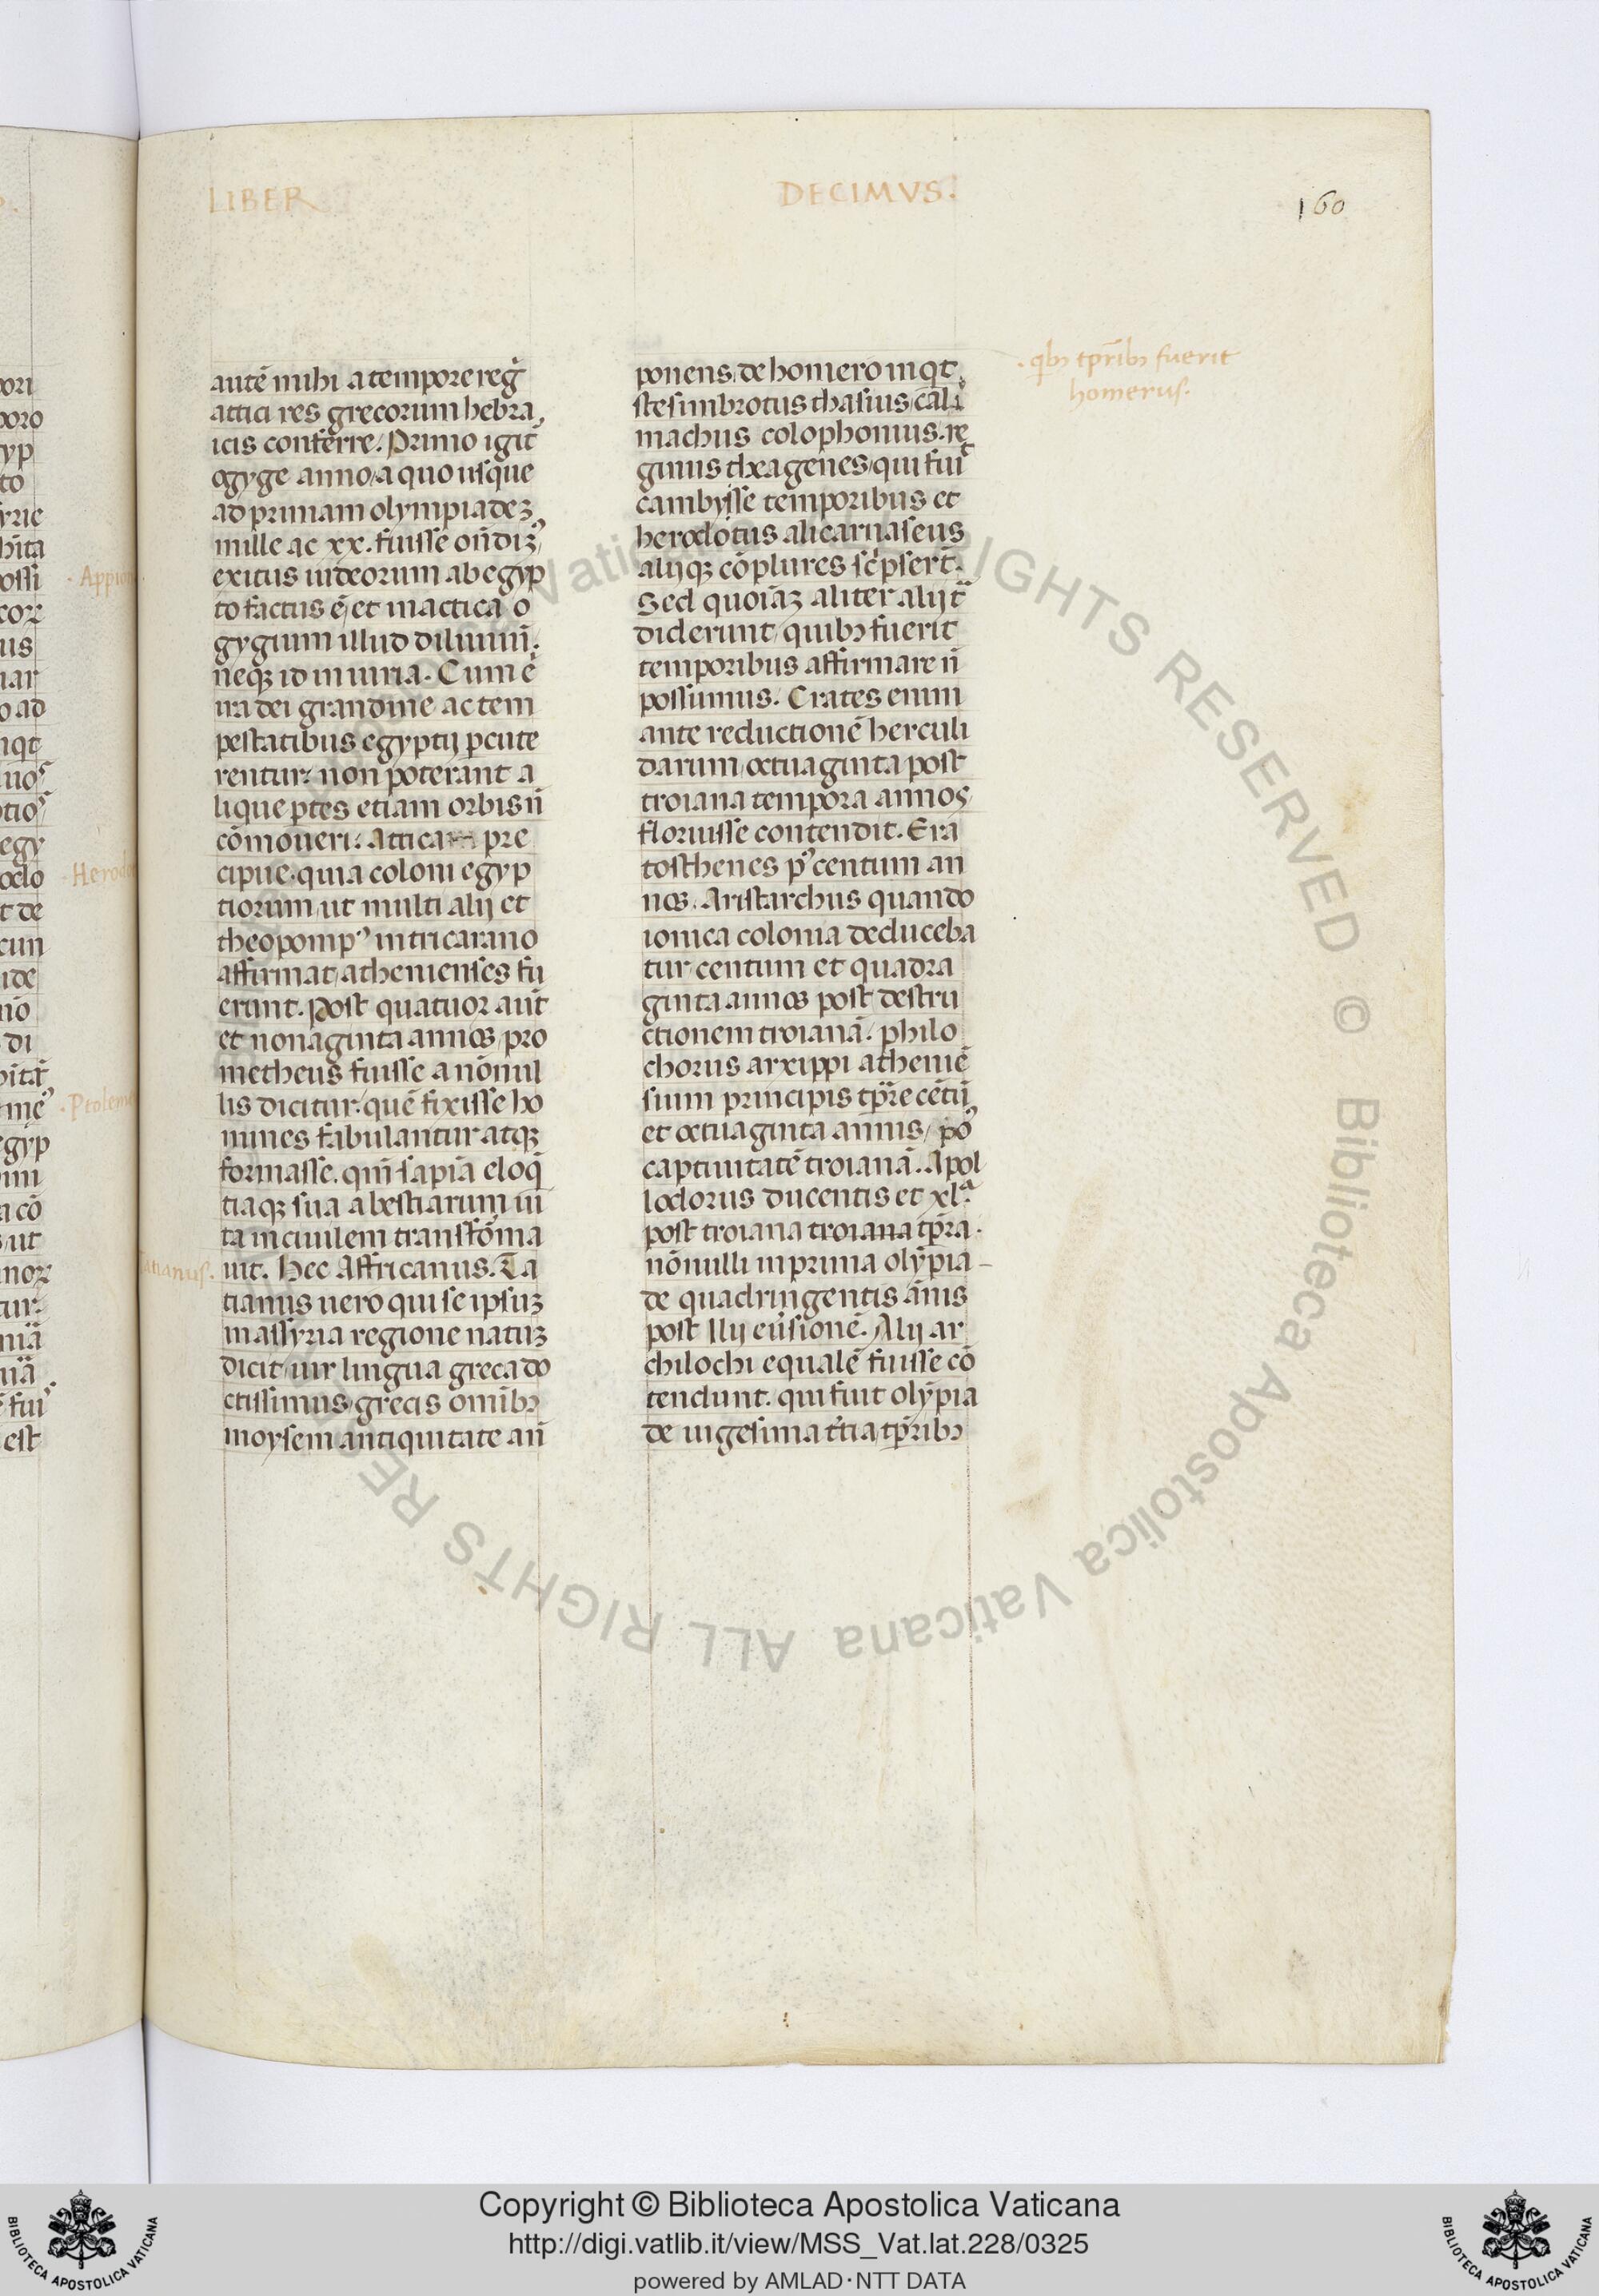 LIBER DECIMVS.
160
autē mihi a tempore reg̉
attici res grecorum hebra
icis conferre. Primo igit̉
ogyge anno/ a quo usque
ad primam olympiadeꝫ
mille ac xx. fuisse on̄diꝫ,
exitus iudeorum ab egyp
to factus ē/ et in actica o
gygium illud diluuiū.
neqꝫ id iniuria. Cum .n.
ira dei grandine ac tem
pestatibus egyptij ꝑcute
rentur: non poterant a
lique ꝑtes etiam orbis n̄
cōmoueri: Attica pre
cipue. quia coloni egyp
tiorum/ ut multi alij et
theopompꝰ in tricarano
affirmat/ athenienses fu
erunt. Post quatuor aūt
et nonaginta annos/ pro
metheus fuisse a nōnul
lis dicitur. quē fixisse ho
mines fabulantur atqꝫ
formasse. qm̄ sapiā eloq̄
tiaqꝫ sua a bestiarum ui
ta in ciuilem transfōma
uit. Hec Affricanus. Ta
tianus uero qui se ipsuꝫ
in assyria regione natuꝫ
dicit/ uir lingua greca do
ctissimus/ grecis omībꝫ
moysem antiquitate an̄
ponens/ de homero inqt.
stesimbrotus thasius/ cali
machus colophonius. re
ginus theagenes/ qui fuit
cambysse temporibus et
herodotus alicarnaseus
alijqꝫ cōplures scͥpsert̄.
Sed quoiāꝫ aliter alij tͣ
diderunt/ quibꝫ fuerit
temporibus affirmare n̄
possumus. Crates enim
ante reductionē herculi
darum/ octuaginta post
troiana tempora annos
floruisse contendit. Era
tosthenes pꝰ centum an
nos. Aristarchus quando
ionica colonia deduceba
tur/ centum et quadra
ginta annos post destru
ctionem troianā. philo
chorus arxippi atheniē
sium principis tp̄re cētū
et octuaginta annis/ pꝰ
captiuitatē troianā. Apol
lodorus ducentis et xl.ᵃ
post troiana troiana tp̄ra.
nōnulli in prima olympia-
de quadringentis ānis
post Ilij euͬsionē. Alij ar
chilochi equalē fuisse cō
tendunt. qui fuit olympia
de uigesima t̉tia/ tp̄ribꝫ
· qͥbꝫ tp̄ribꝫ fuerit
homerus.
· Appion
· Herodo
· Ptoleme
Tatianus.
Copyright © Biblioteca Apostolica Vaticana
http://digi.vatlib.it/view/MSS_Vat.lat.228/0325
powered by AMLAD·NTT DATA
BIBLIOTECA APOSTOLICA VATICANA
BIBLIOTECA APOSTOLICA VATICANA